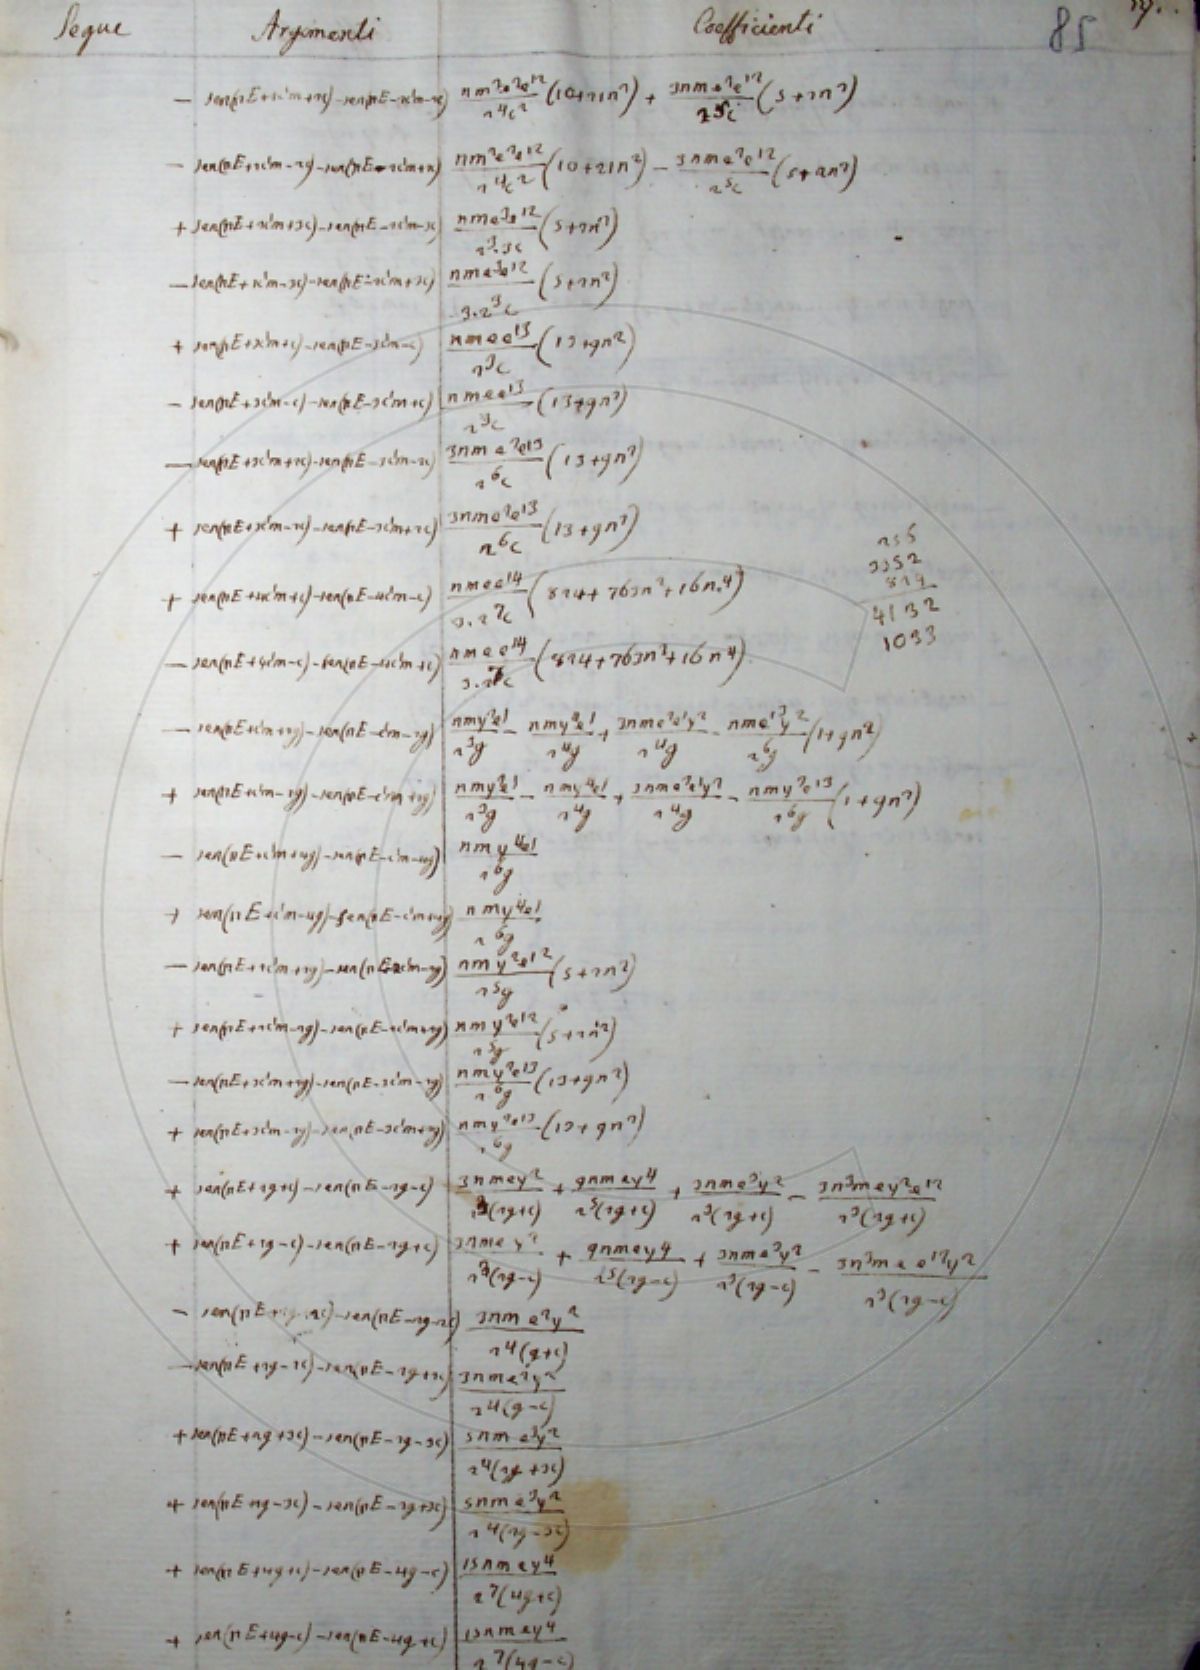 Segue Argomenti Coefficienti 85
− sen(nE+2c'm+2c)−sen(nE−2c'm−2c) nm²e²e'²/2⁴c² (10+21n²) + 3nme²e'²/2⁵c (5+2n²)
− sen(nE+2c'm−2c)−sen(nE−2c'm+2c) nm²e²e'²/2⁴c² (10+21n²) − 3nme²e'²/2⁵c (5+2n²)
+ sen(nE+2c'm+3c)−sen(nE−2c'm−3c) nme³e'²/2³.3c (5+2n²)
− sen(nE+2c'm−3c)−sen(nE−2c'm+3c) nme³e'²/3.2³c (5+2n²)
+ sen(nE+3c'm+c)−sen(nE−3c'm−c) nmee'³/2³c (13+9n²)
− sen(nE+3c'm−c)−sen(nE−3c'm+c) nmee'³/2³c (13+9n²)
− sen(nE+3c'm+2c)−sen(nE−3c'm−2c) 3nme²e'³/2⁶c (13+9n²)
+ sen(nE+3c'm−2c)−sen(nE−3c'm+2c) 3nme²e'³/2⁶c (13+9n²)
256
3352
824
4132
1033
+ sen(nE+4c'm+c)−sen(nE−4c'm−c) nmee'⁴/3.2⁷c (824+763n²+16n⁴)
− sen(nE+4c'm−c)−sen(nE−4c'm+c) nmee'⁴/3.2⁷c (824+763n²+16n⁴)
− sen(nE+c'm+2g)−sen(nE−c'm−2g) nmy²e'/2³g − nmy⁴e'/2⁴g + 3nme²e'y²/2⁴g − nme'³y²/2⁶g (1+9n²)
+ sen(nE+c'm−2g)−sen(nE−c'm+2g) nmy²e'/2³g − nmy⁴e'/2⁴g + 3nme²e'y²/2⁴g − nmy²e'³/2⁶g (1+9n²)
− sen(nE+c'm+4g)−sen(nE−c'm−4g) nmy⁴e'/2⁶g
+ sen(nE+c'm−4g)−sen(nE−c'm+4g) nmy⁴e'/2⁶g
− sen(nE+2c'm+2g)−sen(nE−2c'm−2g) nmy²e'²/2⁵g (5+2n²)
+ sen(nE+2c'm−2g)−sen(nE−2c'm+2g) nmy²e'²/2⁵g (5+2n²)
− sen(nE+3c'm+2g)−sen(nE−3c'm−2g) nmy²e'³/2⁶g (13+9n²)
+ sen(nE+3c'm−2g)−sen(nE−3c'm+2g) nmy²e'³/2⁶g (13+9n²)
+ sen(nE+2g+c)−sen(nE−2g−c) 3nmey²/2³(2g+c) + 9nmey⁴/2⁵(2g+c) + 3nme³y²/2³(2g+c) − 3n³mey²e'²/2³(2g+c)
+ sen(nE+2g−c)−sen(nE−2g+c) 3nmey²/2³(2g−c) + 9nmey⁴/2⁵(2g−c) + 3nme³y²/2³(2g−c) − 3n³mee'²y²/2³(2g−c)
− sen(nE+2g+2c)−sen(nE−2g−2c) 3nme²y²/2⁴(g+c)
− sen(nE+2g−2c)−sen(nE−2g+2c) 3nme²y²/2⁴(g−c)
+ sen(nE+2g+3c)−sen(nE−2g−3c) 5nme³y²/2⁴(2g+3c)
+ sen(nE+2g−3c)−sen(nE−2g+3c) 5nme³y²/2⁴(2g−3c)
+ sen(nE+4g+c)−sen(nE−4g−c) 15nmey⁴/2⁷(4g+c)
+ sen(nE+4g−c)−sen(nE−4g+c) 15nmey⁴/2⁷(4g−c)